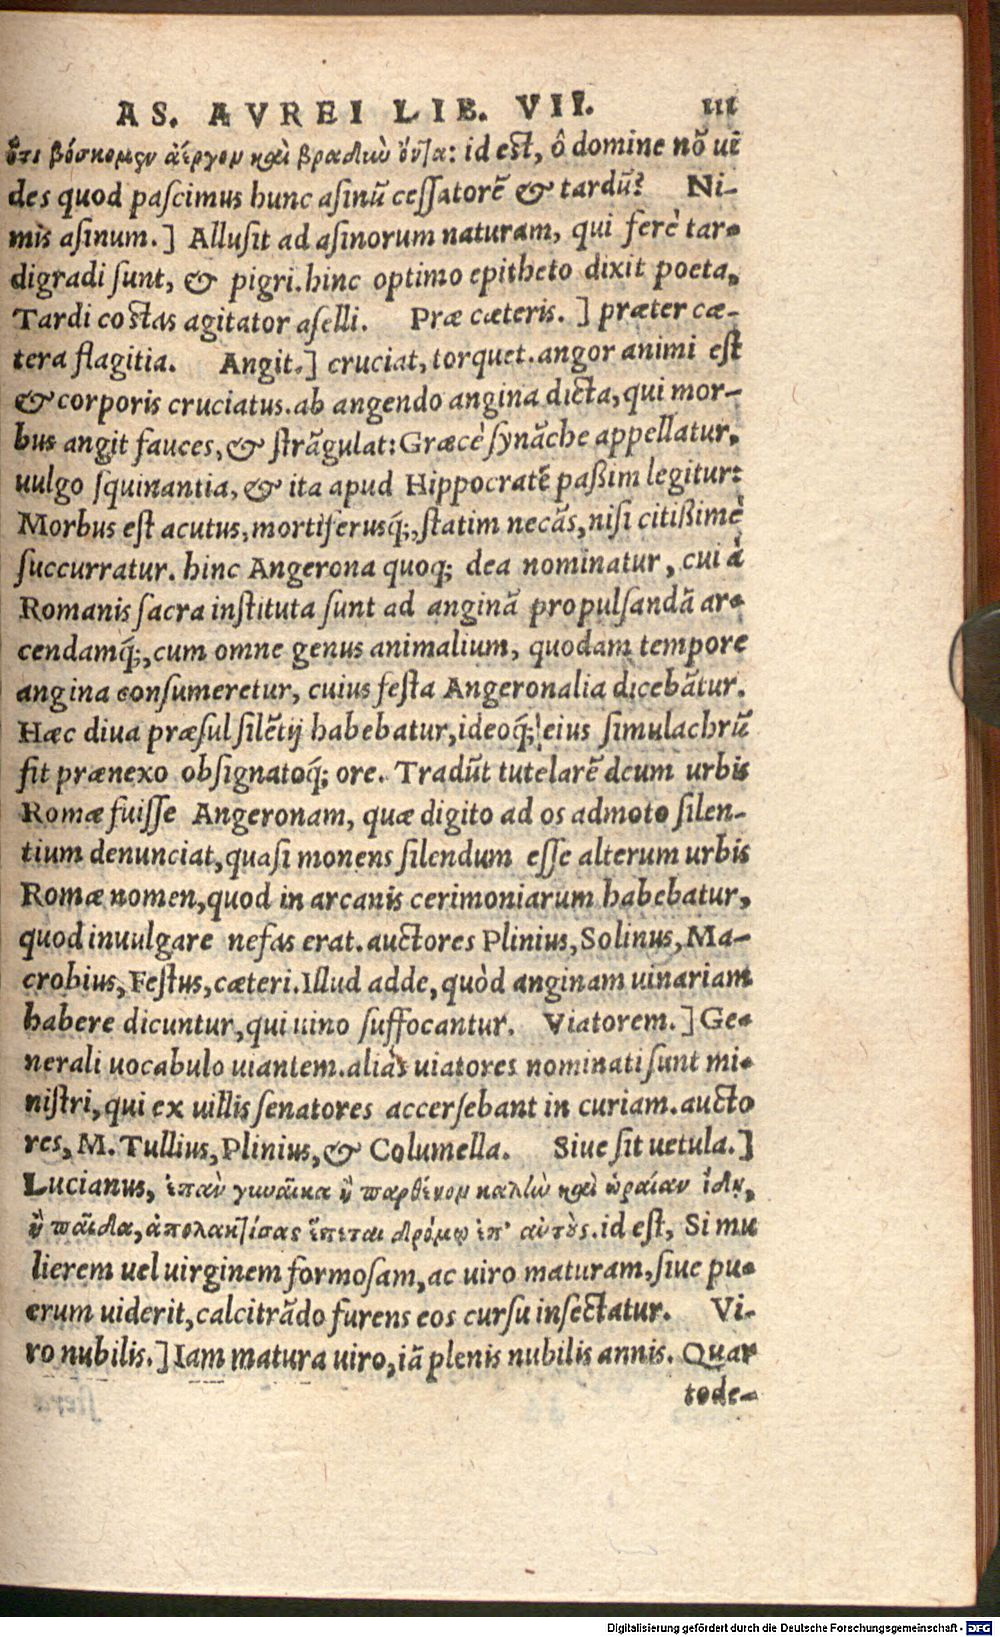 AS. AVREI LIB. VII. III
ὅτι βόσκομεν ἀέργον καὶ βραδιὼ ὄντα: id est, ô domine nõ uĩ
des quod paſcimus hunc aſinũ ceſſatorẽ & tardũ? Ni-
mis aſinum.] Alluſit ad aſinorum naturam, qui ferè tar-
digradi ſunt, & pigri.hinc optimo epitheto dixit poeta,
Tardi costas agitator aſelli. Præ cæteris.] præter cæ-
tera flagitia. Angit.] cruciat, torquet.angor animi eſt
& corporis cruciatus.ab angendo angina dicta, qui mor-
bus angit fauces, & ſtrãgulat: Græcè ſynãche appellatur,
uulgo ſquinantia, & ita apud Hippocratẽ paßim legitur:
Morbus eſt acutus, mortiferusq́;, ſtatim necãs, niſi citißimè
ſuccurratur. hinc Angerona quoq; dea nominatur, cui à
Romanis ſacra inſtituta ſunt ad anginã propulſandã ar-
cendamq́;, cum omne genus animalium, quodam tempore
angina conſumeretur, cuius feſta Angeronalia dicebãtur.
Hæc diua præſul ſilẽtij habebatur, ideoq́; eius ſimulachrũ
fit prænexo obſignatoq́; ore. Tradũt tutelarẽ deum urbis
Romæ fuiſſe Angeronam, quæ digito ad os admoto ſilen-
tium denunciat, quaſi monens ſilendum eſſe alterum urbis
Romæ nomen, quod in arcanis cerimoniarum habebatur,
quod inuulgare nefas erat. auctores Plinius, Solinus, Ma-
crobius, Feſtus, cæteri. Illud adde, quòd anginam uinariam
habere dicuntur, qui uino ſuffocantur. Viatorem.] Ge-
nerali uocabulo uiantem. aliàs uiatores nominati ſunt mi-
niſtri, qui ex uillis ſenatores accerſebant in curiam. aucto
res, M. Tullius, Plinius, & Columella. Siue ſit uetula.]
Lucianus, ἐπαὺ γυναῖκα ἢ παρθένον καλιὼ καὶ ὡραίαν ἴδῃ,
ἢ παῖδα, ἀπολακτίσας ἕπεται δρόμῳ ἐπ' αὐτούς. id eſt, Si mu
lierem uel uirginem formoſam, ac uiro maturam, ſiue pu-
erum uiderit, calcitrãdo furens eos curſu inſectatur. Vi-
ro nubilis.] Iam matura uiro, iã plenis nubilis annis. Quar
tode-
Digitalisierung gefördert durch die Deutsche Forschungsgemeinschaft - DFG